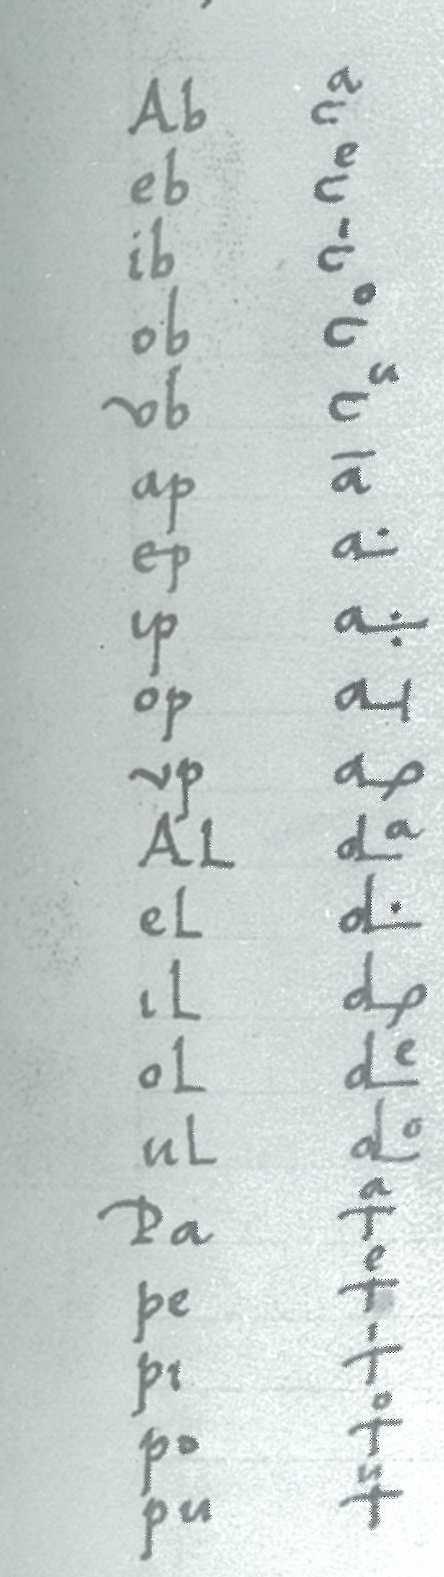 Ab cᵃ
eb cᵉ
ib cⁱ
ob cᵒ
vob cᵘ
ap ā
ep
ip
op
vp
AL dLᵃ
eL
iL
oL dLᵉ
uL dLᵒ
Pa Tᵃ
pe Tᵉ
pi Tⁱ
po Tᵒ
pu Tᵘ